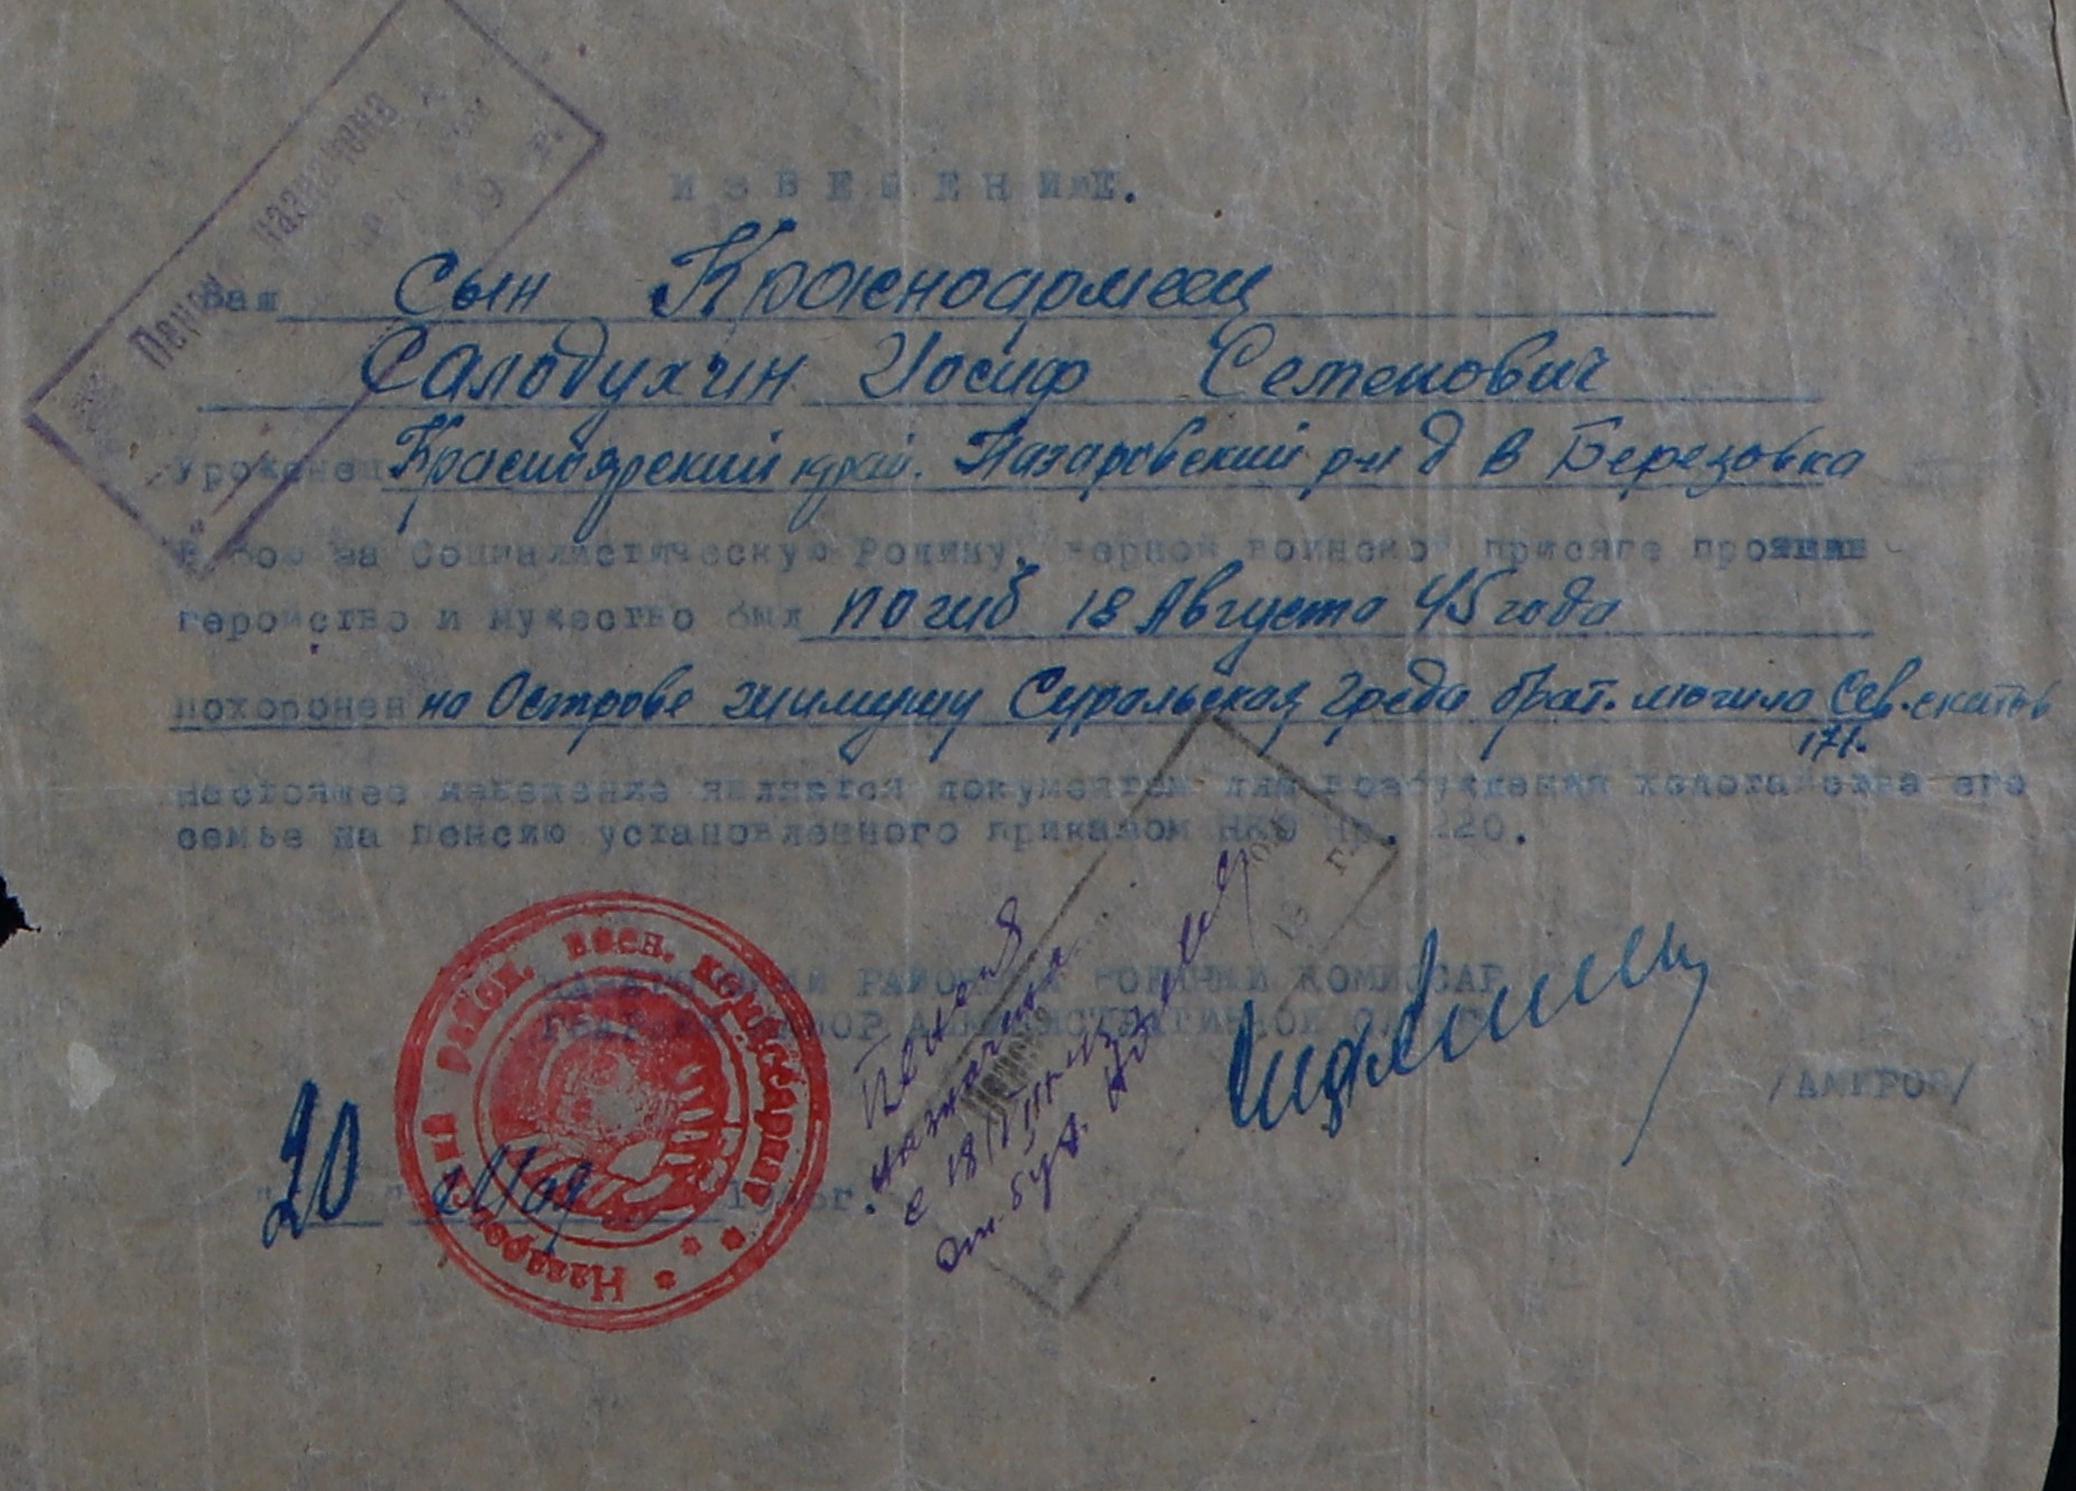 ИЗВЕЩЕНИЕ.
Ваш Сын Красноармеец
Салодухин Иосиф Семенович
Уроженец Красноярский край. Назаровский р-н д В Березовка
В бою за Социалистическую Родину, верной воинской присяге проявив
геройство и мужество был погиб 18 Августа 45 года
похоронен на Острове Шимушу Сев. скатов
брат. могила
171.
настоящее извещение является документом для возбуждения ходотайства его
семье на пенсию установленного приказом НКО №. 220.
НАЗАРОВСКИЙ РАЙОННЫЙ ВОЕННЫЙ КОМИССАР
МАЙОР АДМИНИСТРАТИВНОЙ
/АМИРОВ/
"20" Мая г.
Пенсия
назначена
с 18/VIII-45
Назаровский район. воен. комиссариат
назначена
19 г.
19 г.